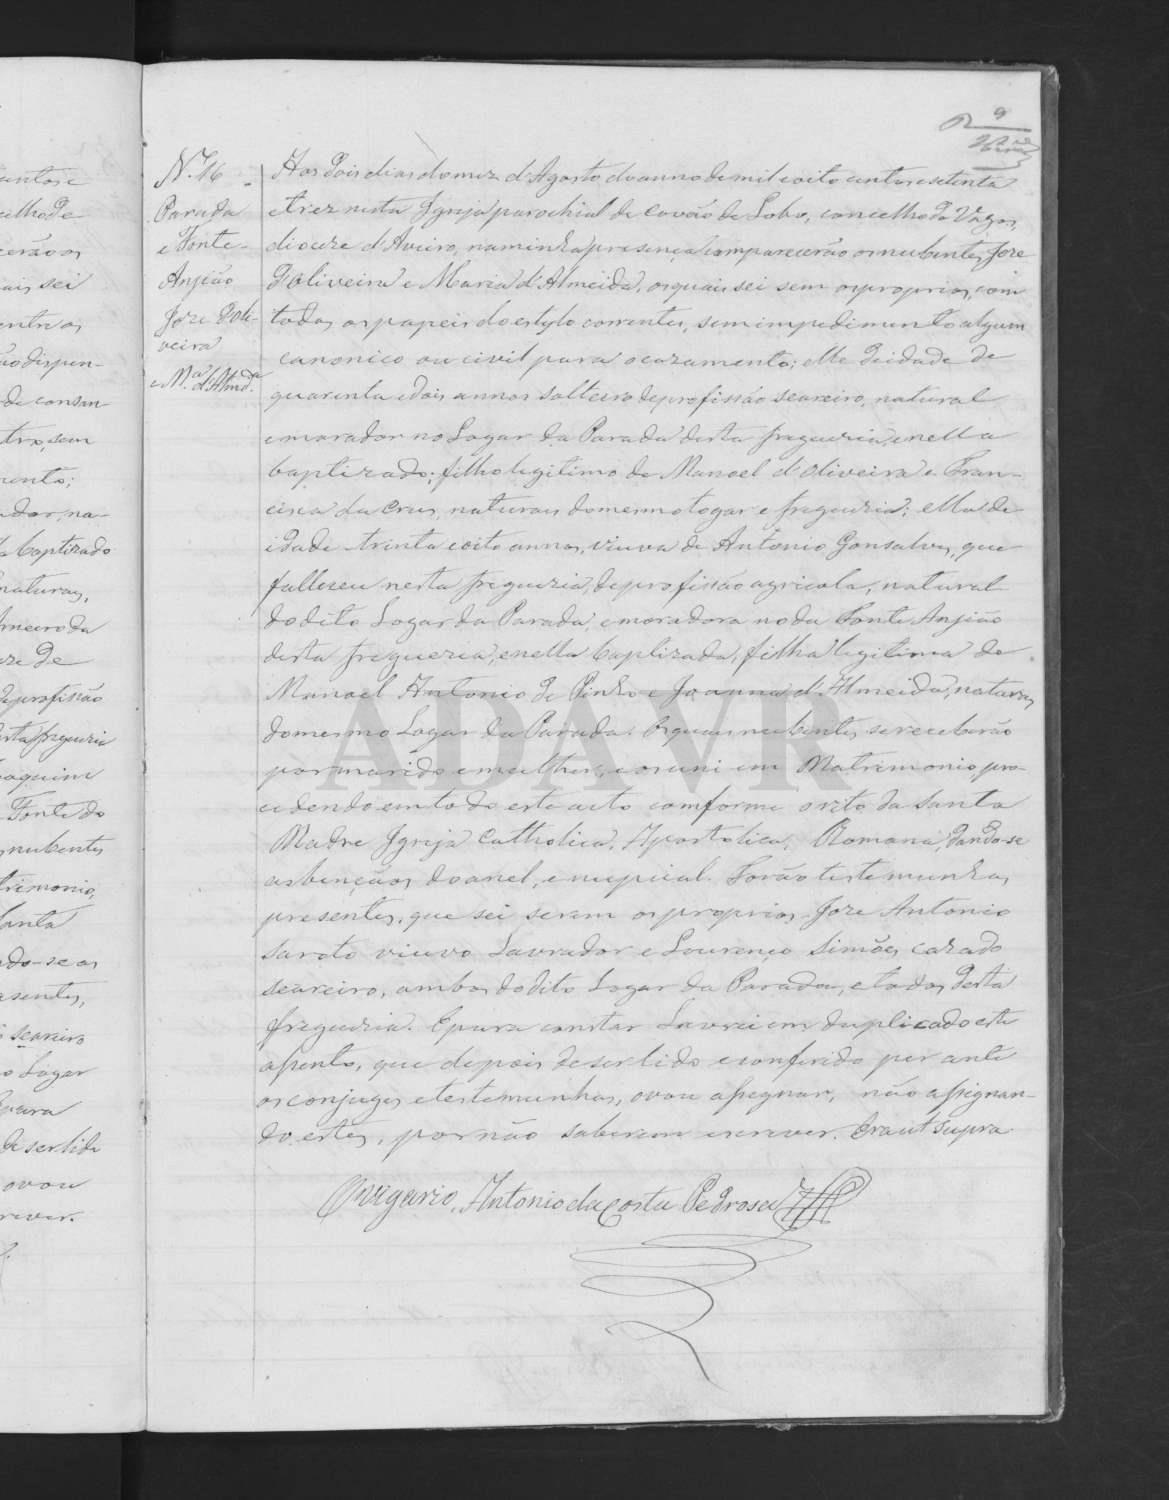 9
N.º 16
Parada
e Fonte-
Anjião
Joze d'Oli-
veira
e M.ª d'Almd.ª
Aos dois dias do mez d'Agosto do anno de mil e oito centos e setenta
e trez nesta Igreja parochial de Covão de Lobo, concelho de Vagos,
dioceze d'Aveiro, na minha presença comparecerão os nubentes Joze
d'Oliveira e Maria d'Almeida, os quais sei serem os proprios, com
todos os papeis do estylo correntes, sem impedimento algum
canonico ou civil para o cazamento; elle de idade de
quarenta e dois annos solteiro de profissão seareiro, natural
e morador no Logar da Parada desta freguezia, e nella
baptizado; filho legitimo de Manoel d'Oliveira e Fran-
cisca da Cruz, naturais do mesmo logar e freguezia; ella de
idade trinta e oito annos, viuva de Antonio Gonsalves, que
falleseu nesta freguezia, de profissão agricola, natural
do dito Logar da Parada, e moradora no da Fonte Anjião
desta freguezia, e nella baptizada, filha legitima de
Manoel Antonio de Pinho e Joanna d'Almeida, naturais
do mesmo Logar da Parada. Os quais nubentes se receberão
por marido e mulher, e os uni em Matrimonio, pro-
cedendo em todo este acto comforme o rito da Santa
Madre Igreja Catholica, Apostolica, Romana, dando-se
as bençãos do anel, e nupcial. Forão testemunhas
presentes, que sei serem os proprios, Joze Antonio
saroto viuvo Lavrador e Lourenço Simões, cazado
seareiro, ambos do dito Logar da Parada, e todos desta
freguezia. E para constar Lavrei em duplicado este
assento, que depois de ser lido e conferido perante
os conjuges e testemunhas, o vou assignar, não assignan-
do estes, por não saberem escrever. Era ut supra
O vigario, Antonio da Costa Pedrosa
ADAVR